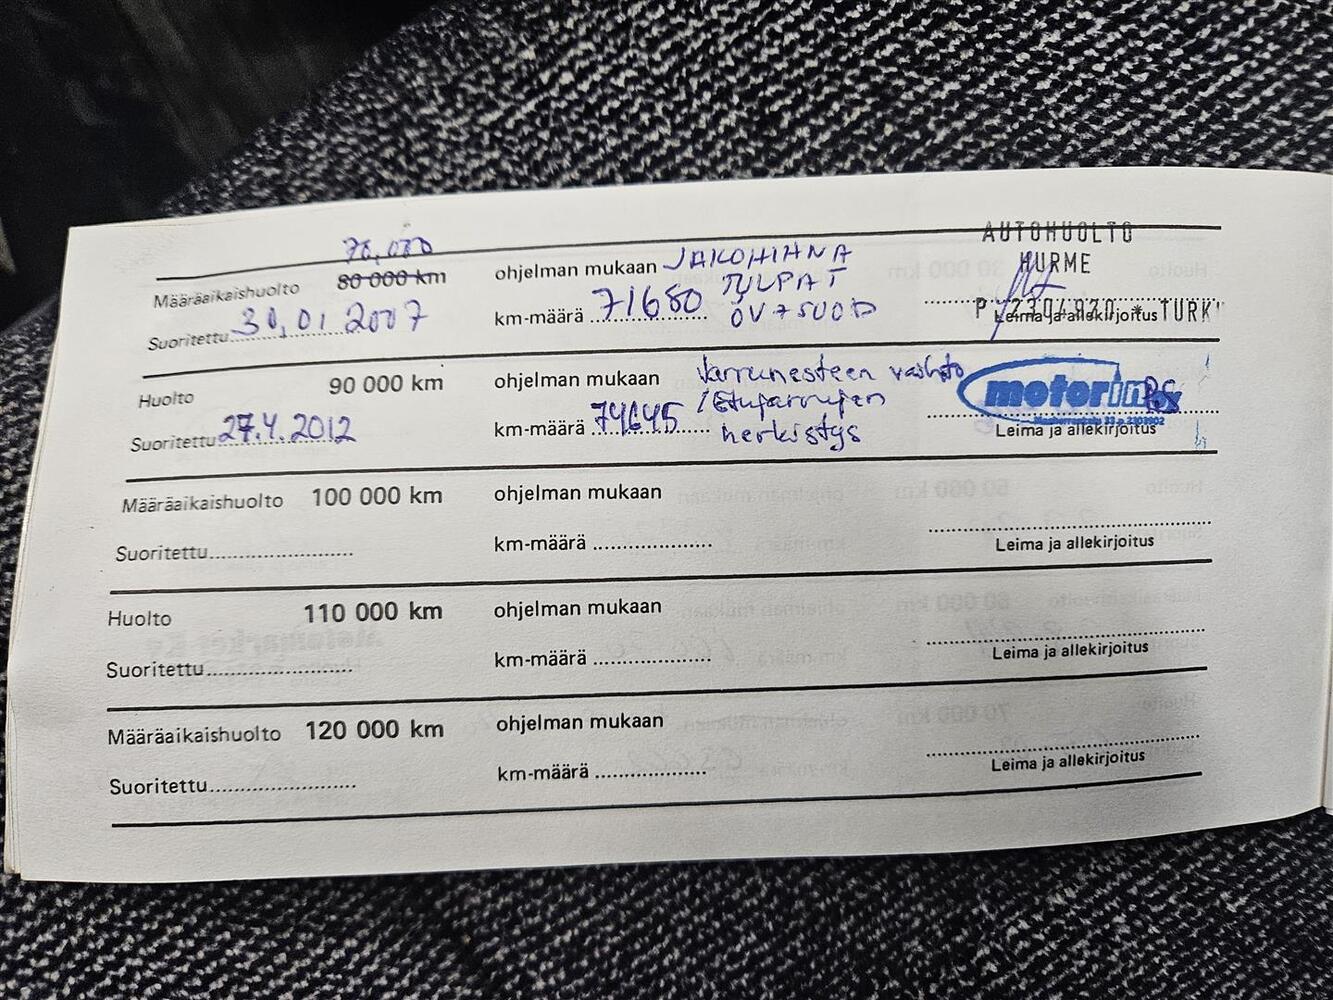 70,000
Määräaikaishuolto 80 000 km ohjelman mukaan JAKOHIHNA
TULPAT
Suoritettu 30,01 2007 km-määrä 71680 ÖV + SUOD
AUTOHUOLTO
HURME
Leima ja allekirjoitus
Huolto 90 000 km ohjelman mukaan Jarrunesteen vaihto
Suoritettu 27.4.2012 km-määrä 74645 / Etujarrujen
herkistys
motorinox
Leima ja allekirjoitus
Määräaikaishuolto 100 000 km ohjelman mukaan
Suoritettu km-määrä
Leima ja allekirjoitus
Huolto 110 000 km ohjelman mukaan
Suoritettu km-määrä
Leima ja allekirjoitus
Määräaikaishuolto 120 000 km ohjelman mukaan
Suoritettu km-määrä
Leima ja allekirjoitus